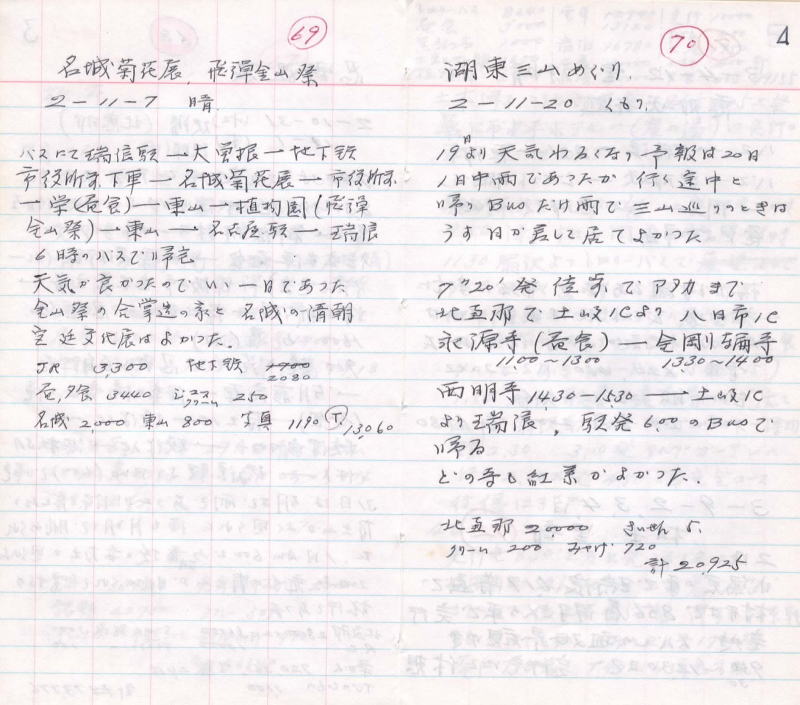 69
名城菊花展、飛弾金山祭
2-11-7 晴
バスにて瑞信駅→大曽根→地下鉄
市役所前下車→名城菊花展→市役所前
→栄(昼食)→東山→植物園(飛弾
金山祭)→東山→名古屋駅→瑞浪
6時のバスで帰宅
天気が良かったのでいい一日であった
金山祭の合掌造の家と名城の清朝
宮廷文化展はよかった。
JR 3,300 地下鉄 1900
2080
昼、夕食 3440 クリーム 250
名城 2000 東山 800 写真 1190 T. 13,060
70
4
湖東三山めぐり、
2-11-20 くもり、
19日より天気わるくなり予報は20日
1日中雨であったが行く途中と
帰りBusだけ雨で三山巡りのときは
うす日が差して居てよかった
7°20'発 で まで
北五那で土岐ICより八日市IC
永源寺(昼食)→金剛輪寺
11,00~1300 13,30~1400
西明寺 14,30-1530 →土岐IC
より瑞浪、駅発6,00のBusで
帰る
どの寺も紅葉がよかった.
北五那 20,000 さいせん 5.
クリーム 200 みやげ 720
計 20,925